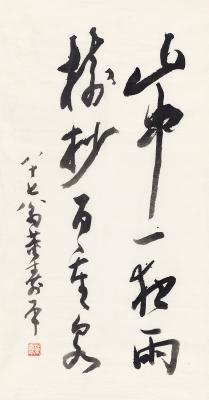 山中一夜雨
树杪百重泉
八十七翁董寿平